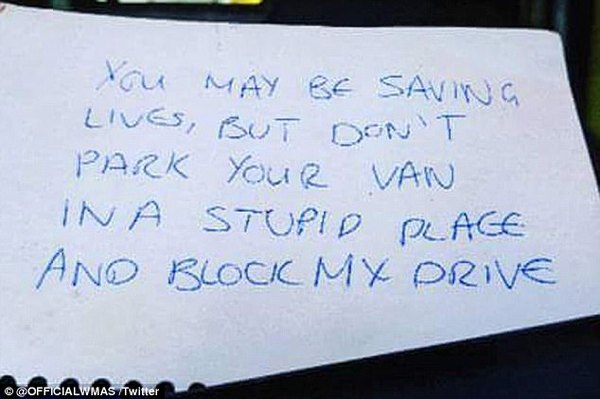 YOU MAY BE SAVING
LIVES, BUT DON'T
PARK YOUR VAN
IN A STUPID PLACE
AND BLOCK MY DRIVE
© @OFFICIALWMAS /Twitter